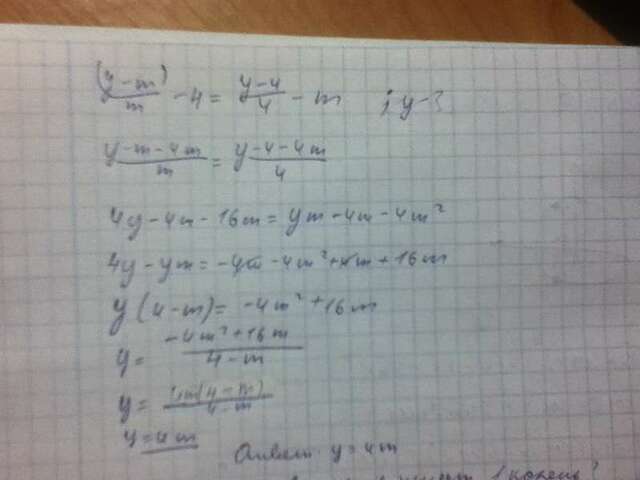 (y-m)/m - 4 = (y-4)/4 - m ; y-?
(y-m-4m)/m = (y-4-4m)/4
4y-4m-16m = ym-4m-4m²
4y-ym = -4m-4m²+4m+16m
y(4-m) = -4m²+16m
y = (-4m²+16m)/(4-m)
y = 4m(4-m)/(4-m)
y = 4m
Ответ: y = 4m
1 корень?